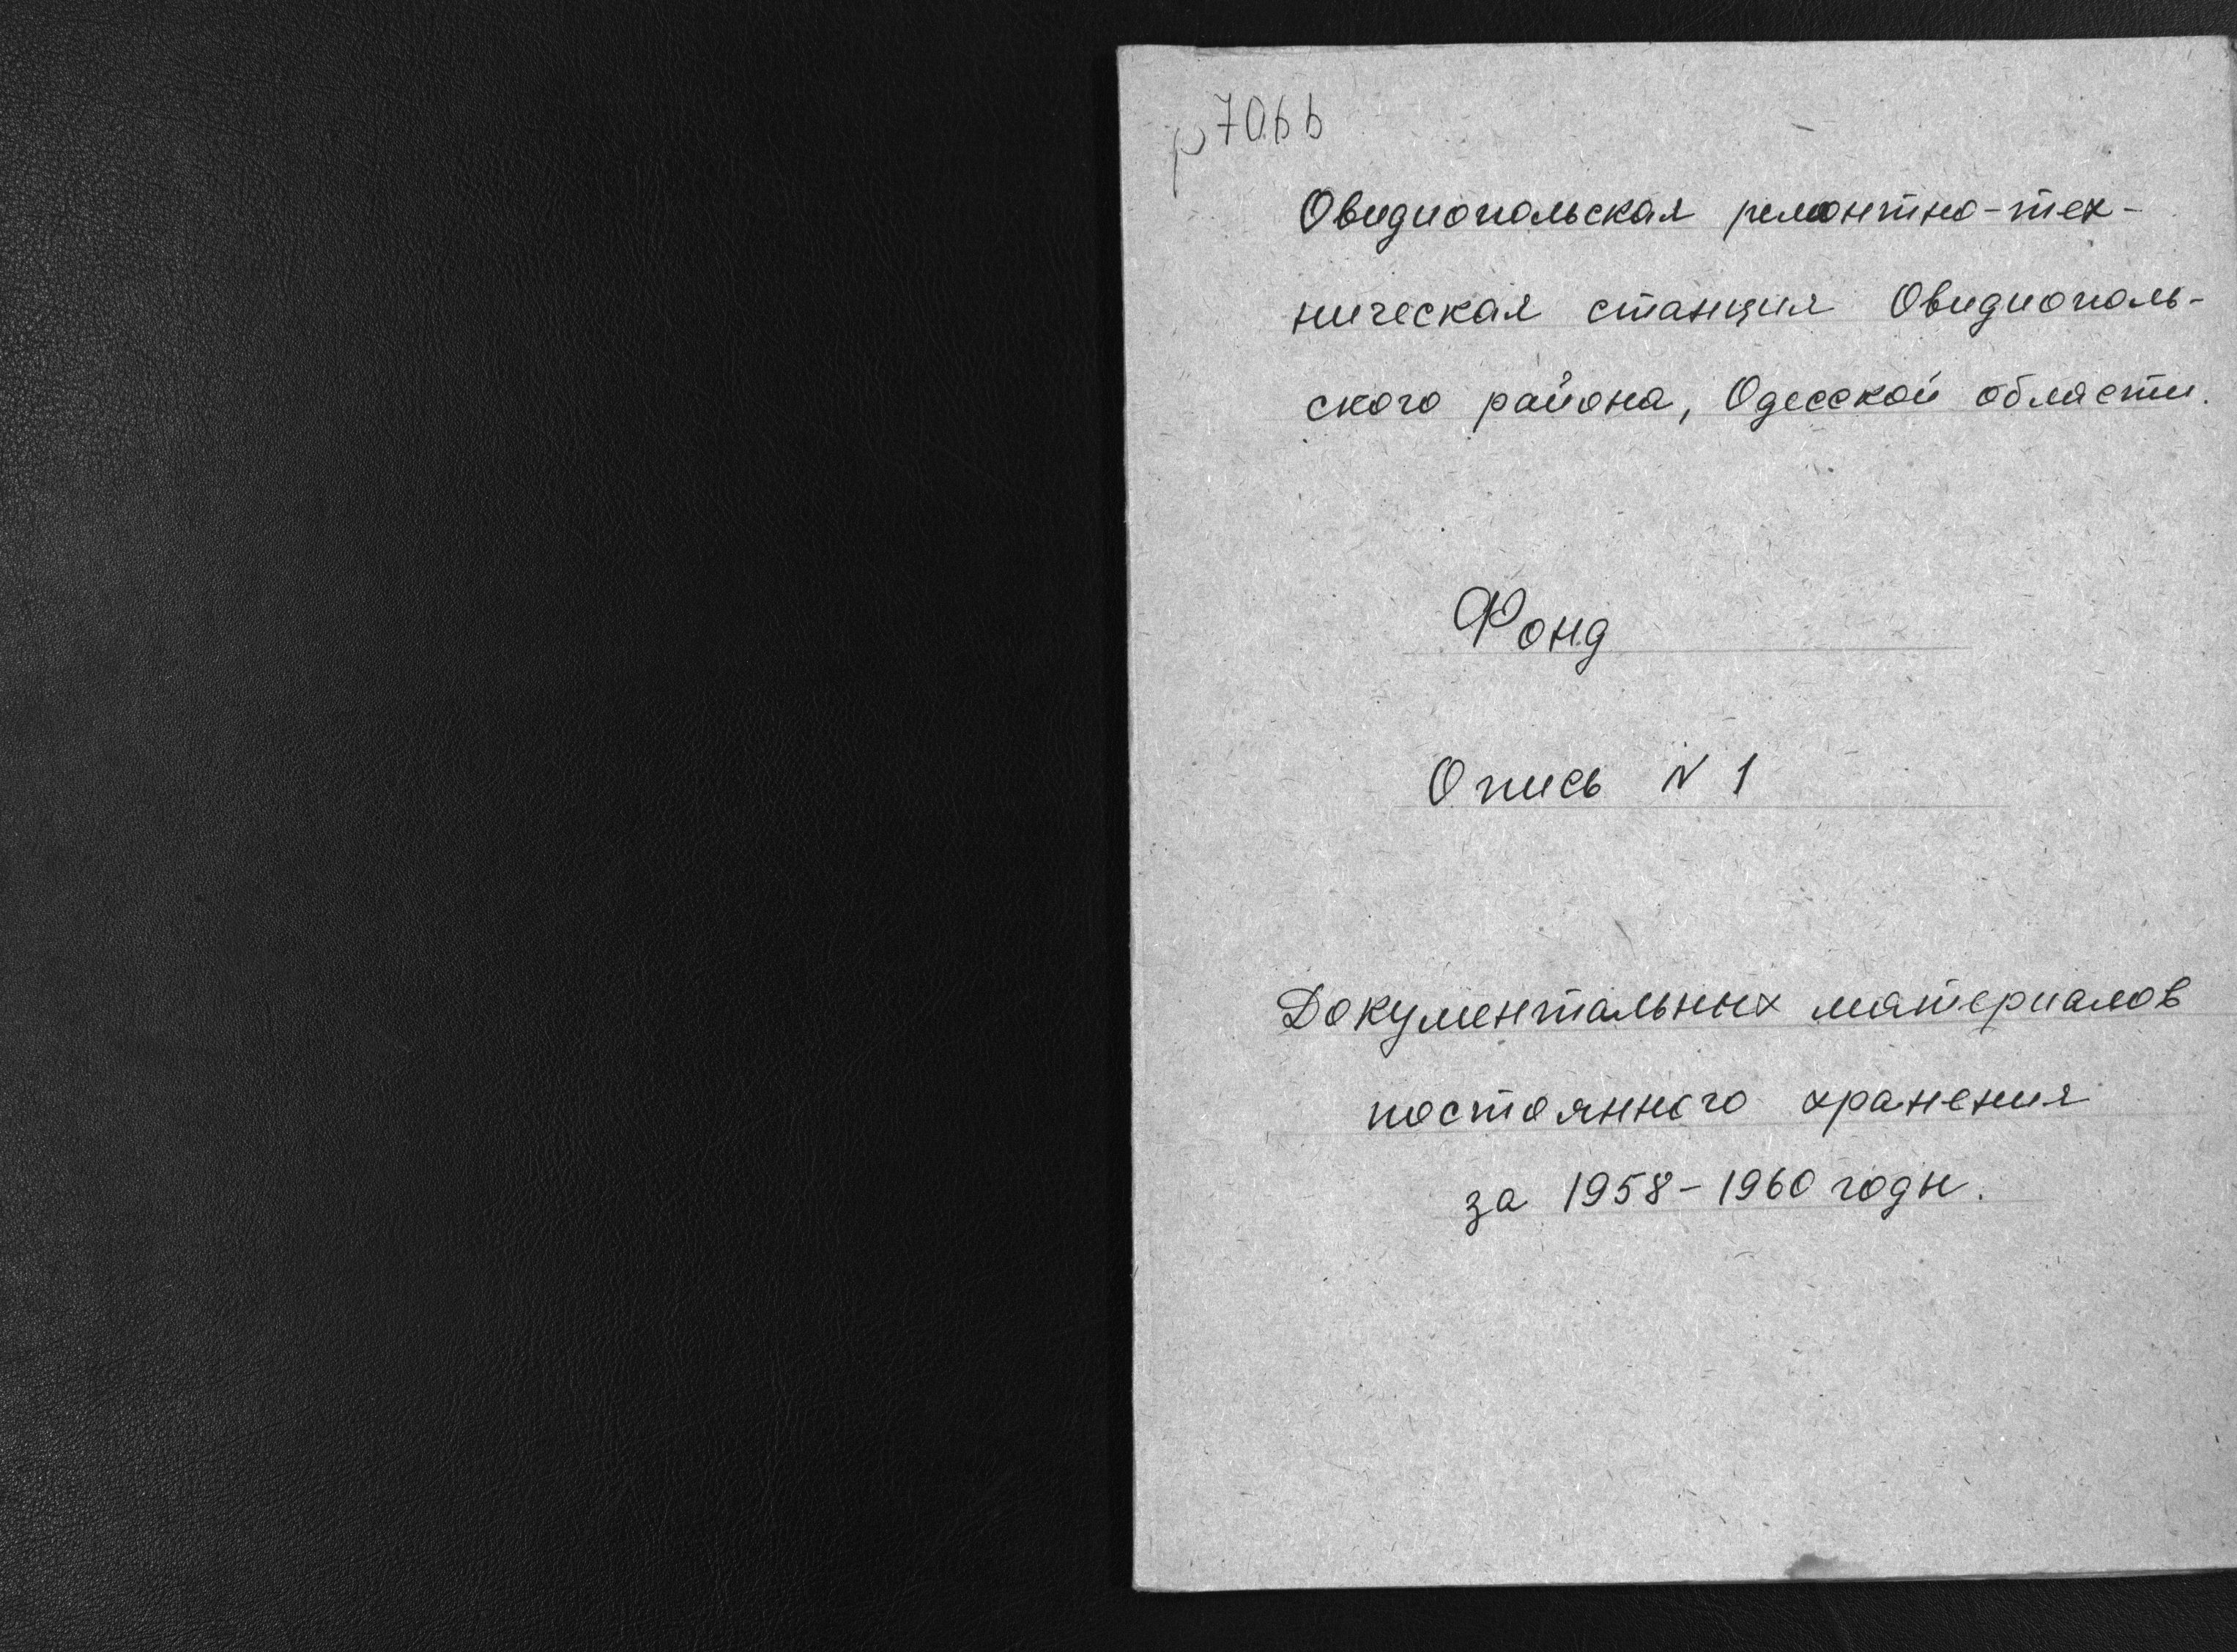 р7066
Овидиопольская ремонтно-тех-
ническая станция Овидиополь-
ского района, Одесской области.
Фонд
Опись N 1
Документальных материалов
постоянного хранения
за 1958-1960 годы.